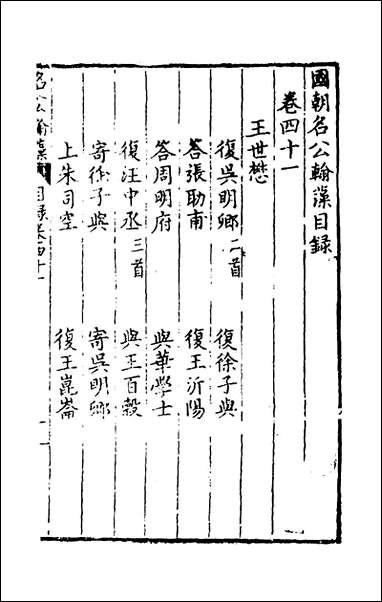 國朝名公翰藻目録
卷四十一
王世懋
復吳明卿二首
復徐子與
答張助甫
復王沂陽
答周明府
與華學士
復汪中丞三首
與王百穀
寄徐子與
寄吳明卿
上朱司空
復王崑崙
名公翰藻
目録卷四十一